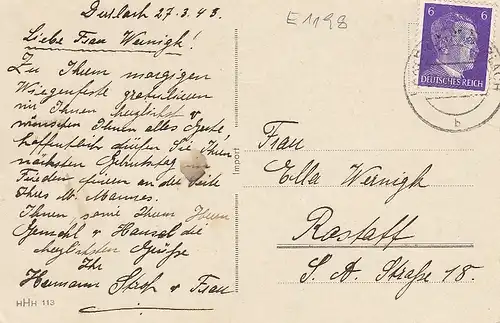 Durlach 27.3.43.
E1198
Liebe Frau Wernigk!
Zu Ihrem morgigen
Wiegenfeste gratulieren
wir Ihnen herzlichst u.
wünschen Ihnen alles Gute,
hoffentlich dürfen Sie Ihren
nächsten Geburtstag im
Frieden feiern an der Seite
Ihres lb. Mannes.
Ihnen, sowie Ihrem Herrn
Gemahl u. Hansel die
herzlichsten Grüße
Ihr
Hermann u Frau
HHH 113
Import
6 6
DEUTSCHES REICH
b
Frau
Ella Wernigk
Rastatt
S. A. Straße 18.